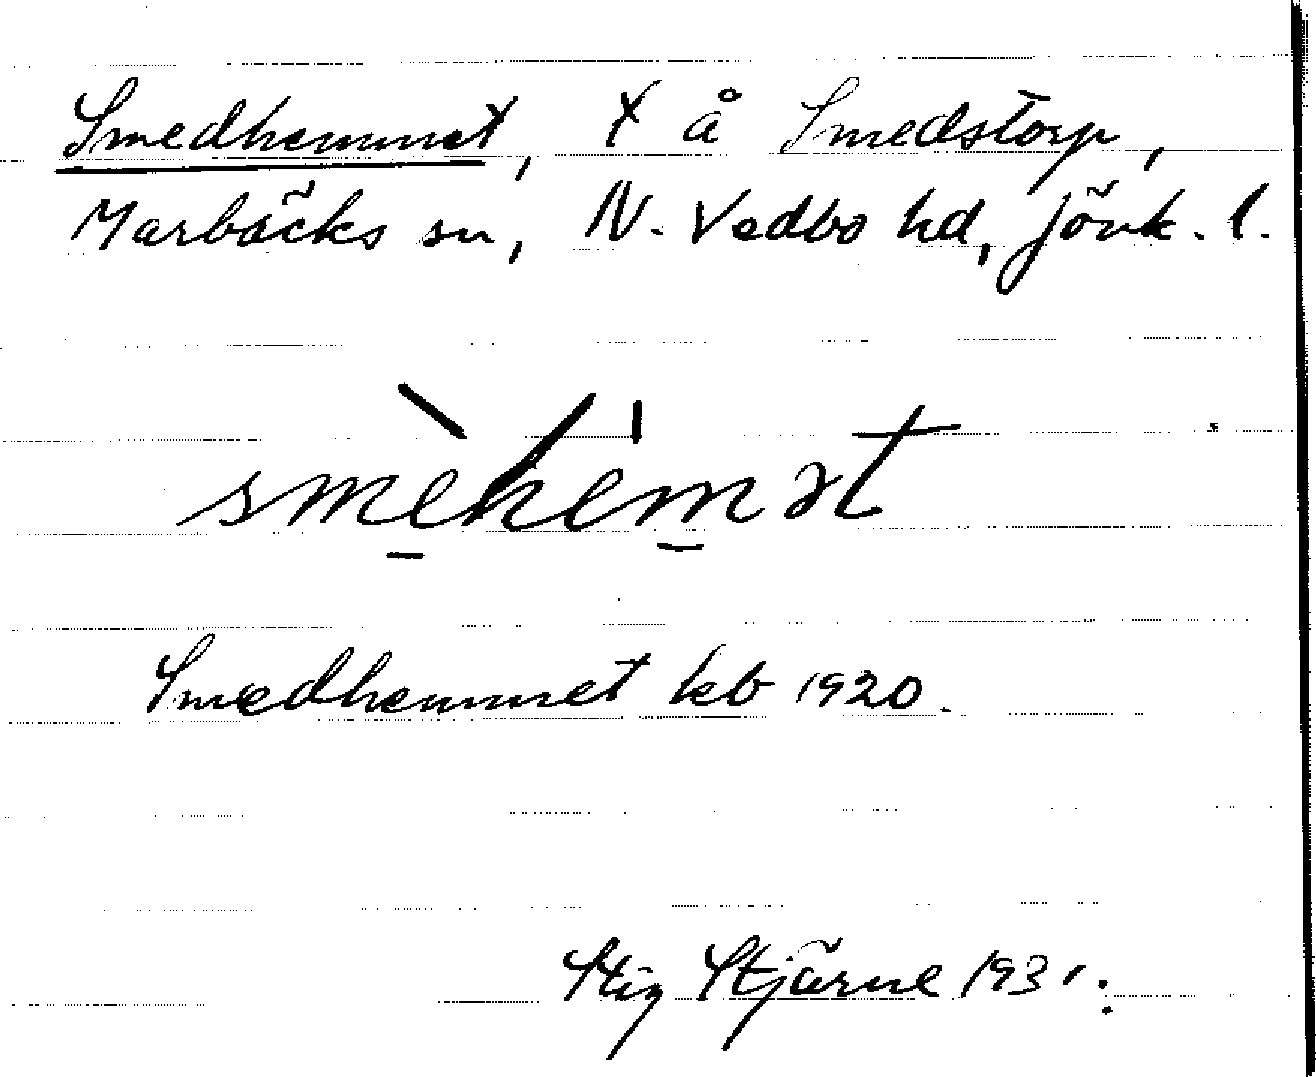 Smedhemmet, x å Smedstorp,
Marbäcks sn, N. Vedbo hd, Jönk. l.
smèhémət
Smedhemmet kb 1920.
Stig Stjärne 1931.